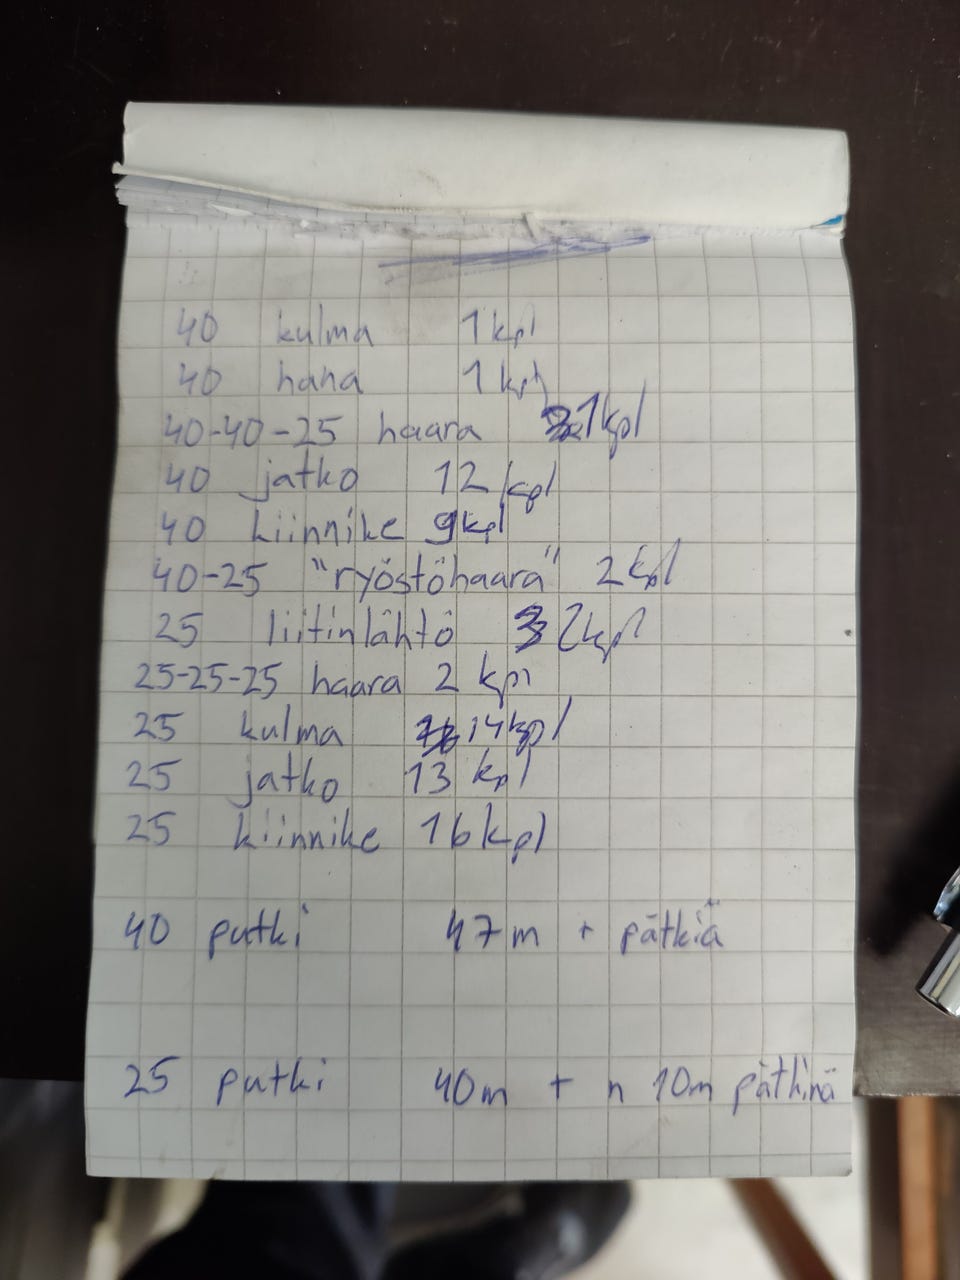 40 kulma 1 kpl
40 hana 1 kpl
40-40-25 haara 1 kpl
40 jatko 12 kpl
40 kiinnike 9 kpl
40-25 "ryöstöhaara" 2 kpl
25 liitinlähtö 2 kpl
25-25-25 haara 2 kpl
25 kulma 14 kpl
25 jatko 13 kpl
25 kiinnike 16 kpl
40 putki 47 m + pätkiä
25 putki 40m + n 10m pätkinä